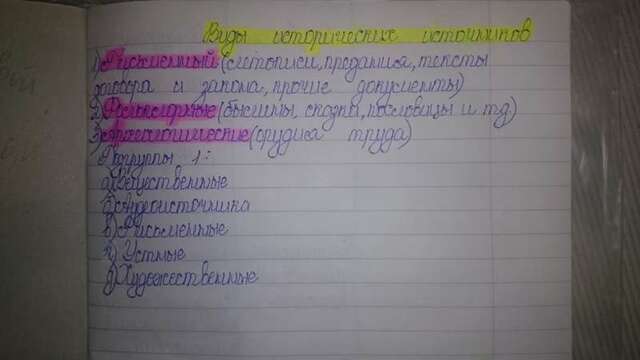 Виды исторических источников
1) Письменный (летописи, предания, тексты
договора и закона, прочие документы)
2) Фольклорные (былины, сказки, пословицы и тд)
3) Археологические (орудия труда)
Подгруппы 1:
а) Вещественные
б) Аудеоисточника
в) Письменные
г) Устные
д) Художественные